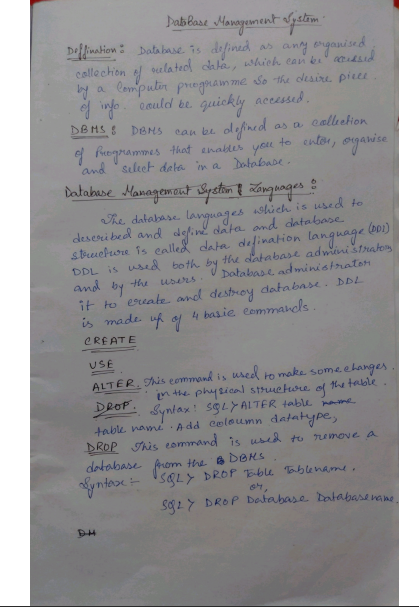 Database Management System.
Deffination: Database is defined as any organised
collection of related data, which can be accessed
by a computer programme so the desire piece
of info. could be quickly accessed.
DBMS: DBMS can be defined as a collection
of Programmes that enables you to enter, organise
and select data in a Database.
Database Management System Languages:
The database languages which is used to
described and define data and database
structure is called data defination language (DDl)
DDL is used both by the database administrators
and by the users. Database administrator
it to create and destroy database. DDL
is made up of 4 basic commands.
CREATE
USE
ALTER. This command is used to make some changes
in the physical structure of the table.
DROP. Syntax: SQL> ALTER table name
table name. Add coloumn datatype,
DROP This command is used to remove a
database from the DBMS.
Syntax:- SQL> DROP Table Tablename.
or,
SQL> DROP Database Databasename,
DM